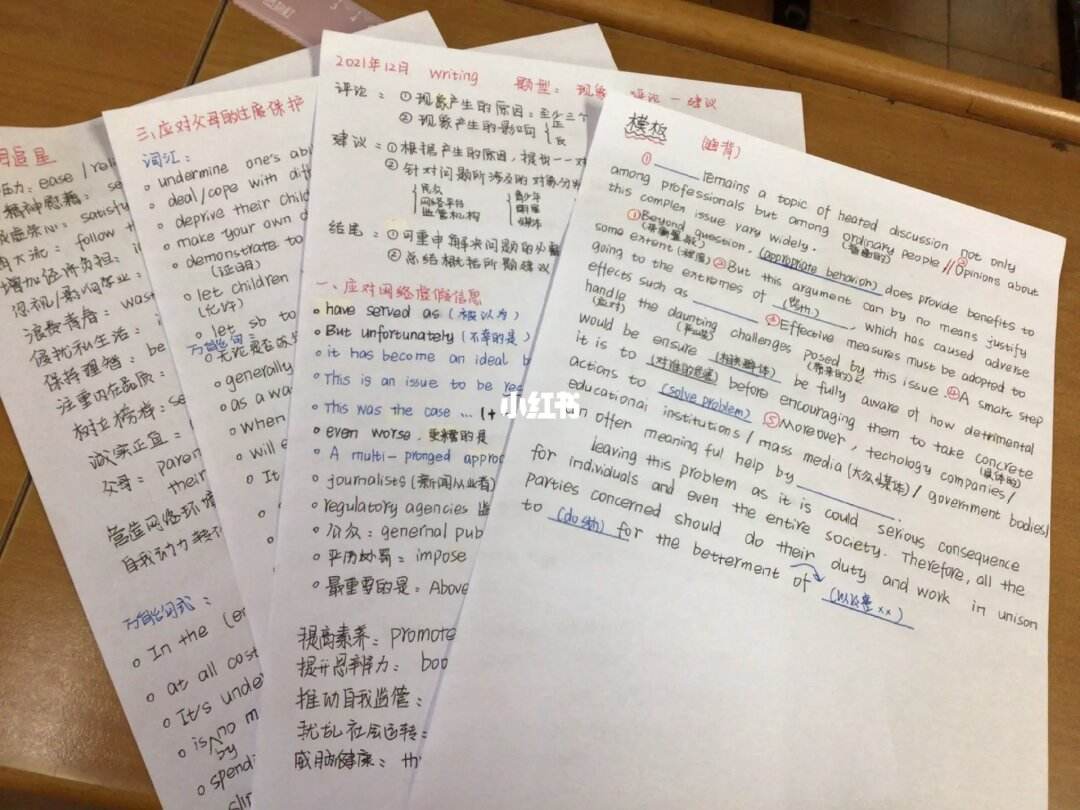 月追星
压力：ease / rel
精神慰藉：se
虚荣心：satisfy
大流：follow t
增加经济负担：i
忽视/影响学业：
浪费青春：wast
侵扰私生活：i
保持理智：be
注重内在品质：
树立榜样：se
诚实正直：
父母：paren
their
营造网络环境
自我动力
万能句式：
o In the (e
o at all cost
o It's unde
o is no m
by
spendi
三、应对父母的过度保护
词汇：
o undermine one's abi
o deal/cope with diff
o deprive their child
o make your own d
o demonstrate to
（证明）
o let children
（允许）
o let sb to
万能句：
o 无论是否
o generally
o as a wa
o when
o will e
o It
2021年12月 Writing 题型：现象 评论 - 建议
评论：① 现象产生的原因：至少三个
② 现象产生的影响 { 正
负
建议：① 根据产生的原因，提出一一对
② 针对问题所涉及的对象分别
民众 青少年
网络平台 明星
监管机构 媒体
结尾：① 可重申解决问题的必要
② 总结概括所题建议
一、应对网络虚假信息
o have served as （被认为）
o But unfortunately （不幸的是）
o it has become an ideal b
o This is an issue to be res
o This was the case ... (+
o even worse，更糟的是
o A multi-pronged approc
o journalists（新闻从业者）
o regulatory agencies 监
o 公众：genernal pub
o 严厉处罚：impose
o 最重要的是：Above
提高素养：promote
提升思辨力：boo
推动自我监管：
扰乱社会运转：
威胁健康：th
小红书
模板 （幽背）
① ______ remains a topic of heated discussion not only
among professionals but among ordinary people // ② Opinions about
this complex issue vary widely. （普通的）
① Beyond question, (appropriate behavior) does provide benefits to
（毋庸置疑）
some extent （程度） ② But this argument can by no means justify
going to the extremes of （做sth.）, which has caused adverse
effects such as ______ ③ Effective measures must be adopted to
handle the daunting challenges posed by this issue. ④ A smart step
（应对） （严峻） （带来的）
would be ensure （相关群体） be fully aware of how detrimental
it is to （对谁的危害） before encouraging them to take concrete
actions to (solve problem) ⑤ Moreover, techology companies /
educational institutions / mass media （大众媒体） / government bodies/
offer meaning ful help by ______.
leaving this problem as it is could serious consequence
for individuals and even the entire society. Therefore, all the
parties concerned should do their duty and work in unison
to (do sth) for the betterment of （以及是××）